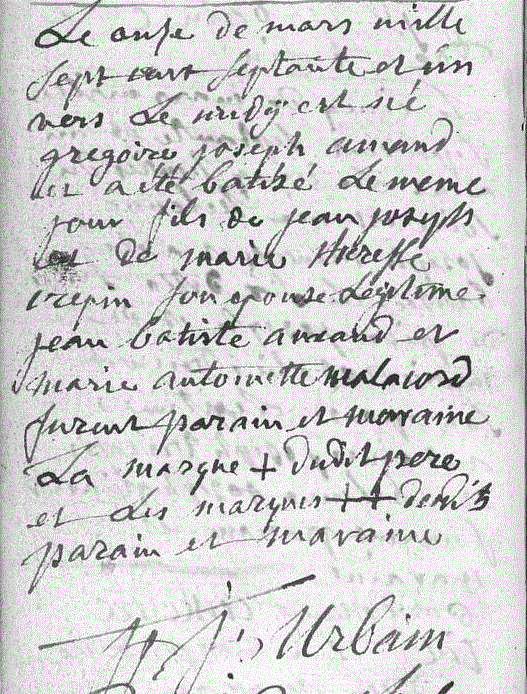 Le onse de mars mille
sept cent septante et un
vers Le midÿ est né
gregoire joseph amand
et a été batisé Le meme
jour fils de jean joseph
et De marie theresse
crepin son epouse Legitime
jean batiste amand et
marie antoinette malacord
furent parain et maraine
La marque + dudit pere
et des marques ++ desdits
parain et maraine
Urbain